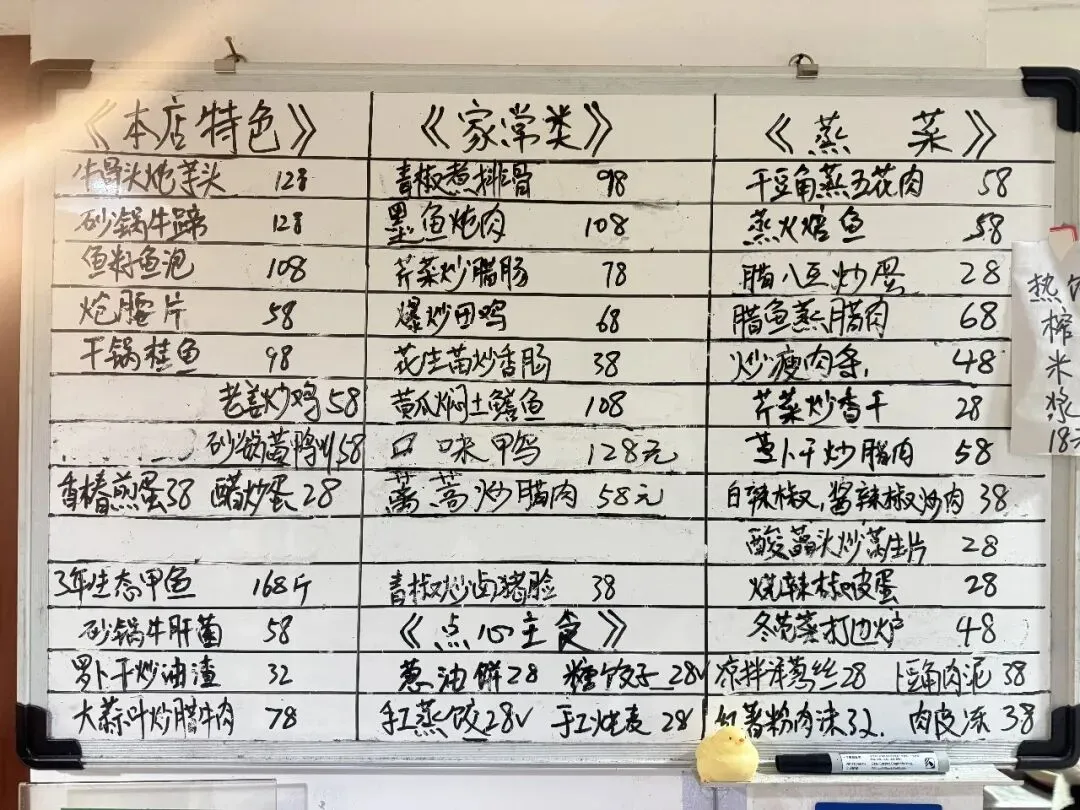 《本店特色》
牛骨头炖芋头 128
砂锅牛蹄 128
鱼籽鱼泡 108
炝腰片 58
干锅桂鱼 98
老姜炒鸡 58
砂锅 鸭 58
香椿煎蛋38 醋炒蛋28
3年生态甲鱼 168斤
砂锅牛肝菌 58
罗卜干炒油渣 32
大蒜叶炒腊牛肉 78
《家常类》
青椒煮排骨 98
墨鱼炖肉 108
芹菜炒腊肠 78
爆炒田鸡 68
花生苗炒香肠 38
黄瓜焖土鳝鱼 108
口味甲鸟 128元
蒿炒腊肉 58元
青椒炒卤猪脸 38
《点心主食》
葱油饼28 糖饺子28
手工蒸饺28 手工烧麦28
《蒸 菜》
干豆角蒸五花肉 58
蒸火焙鱼 58
腊八豆炒蛋 28
腊鱼蒸腊肉 68
炒瘦肉条 48
芹菜炒香干 28
卜干炒腊肉 58
白辣椒,酱辣椒炒肉 38
酸藠头炒 片 28
烧辣椒皮蛋 28
冬苋菜打边炉 48
凉拌 丝28 豆角肉泥 38
红薯粉肉沫32 肉皮冻 38
热
榨
米
浆
18元